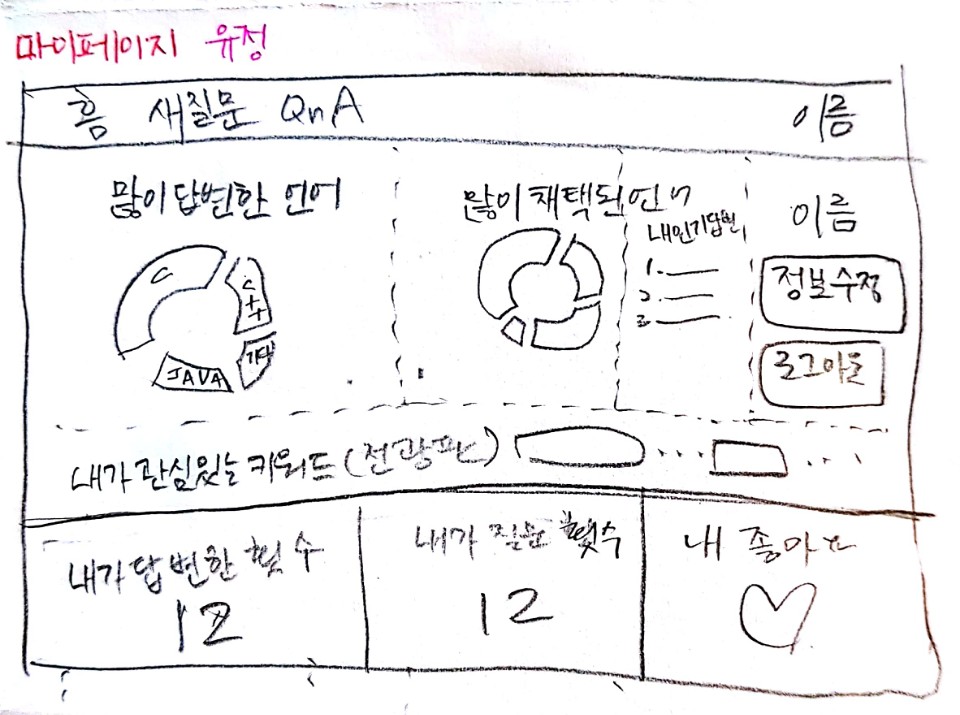 마이페이지 유정
홈 새질문 QnA 이름
많이 답변한 언어
C
C++
기타
JAVA
많이 채택된 언어
내 인기답변
1.
2.
3.
이름
정보수정
로그아웃
내가 관심있는 키워드 (전광판)
내가 답변한 횟수
12
내가 질문 횟수
12
내 좋아요